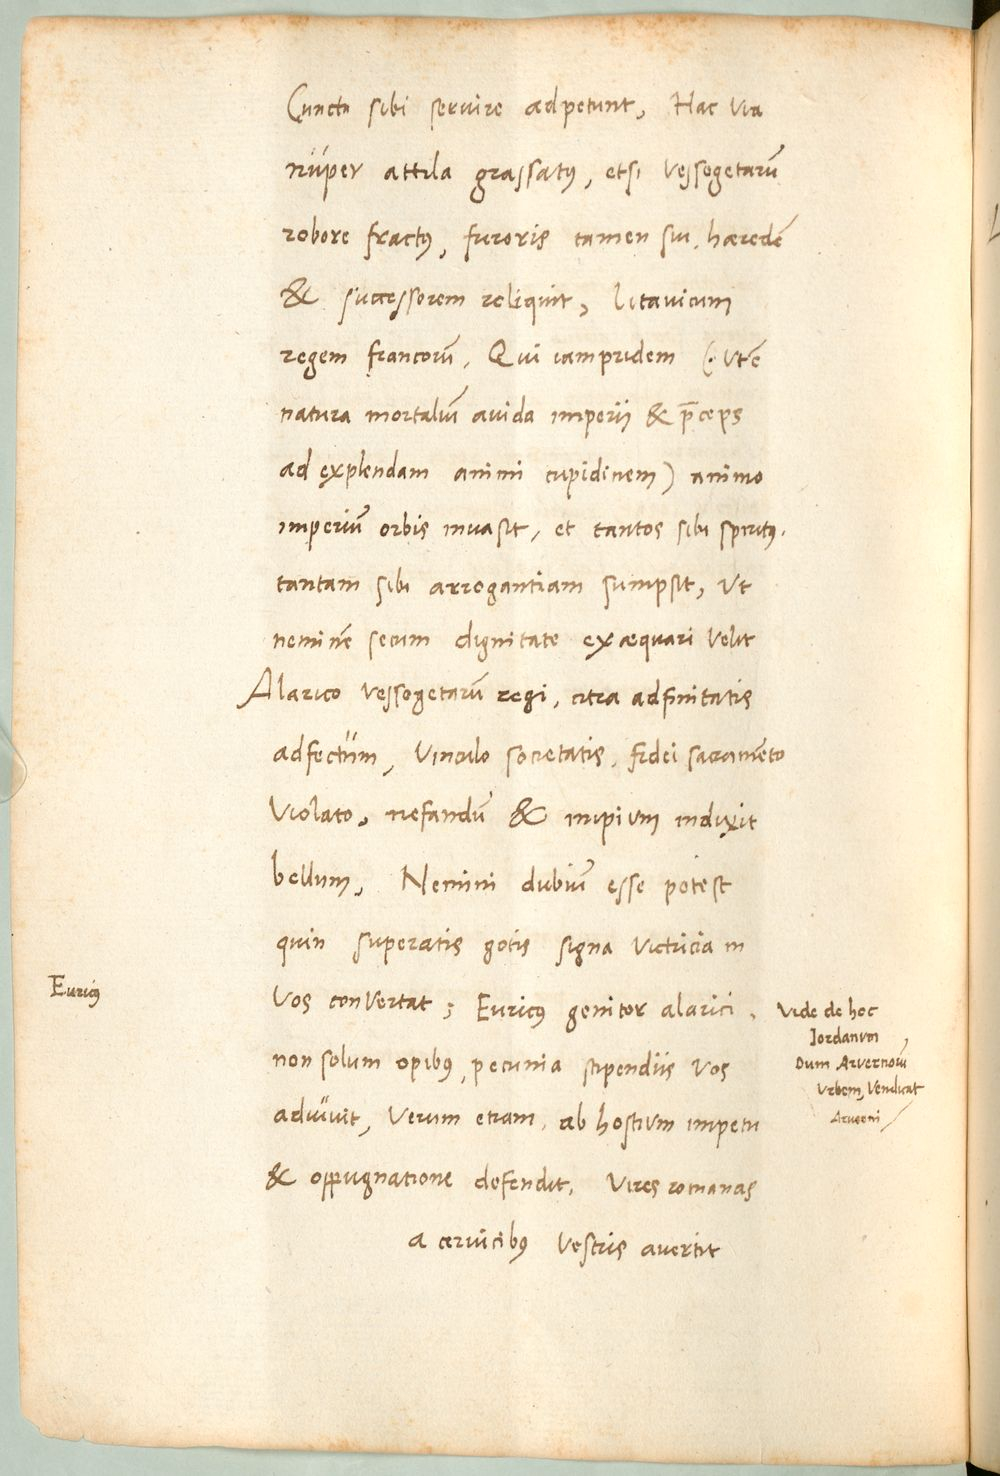 Cuncta sibi seruire adpetunt, Hac via
nŭper attila grassatꝰ, etsi vessogetarū
robore fractꝰ, furoris tamen sui, hæredē
& successorem reliquit, litavicum
regem francorū. Qui iampridem (: Vt ē
natura mortaliū auida imperii & p̄ceps
ad explendam animi cupidinem) animo
imperiū orbis inuasit, et tantos sibi spiritꝰ.
tantam sibi arrogantiam sumpsit, Vt
neminē secum dignitate exæquari velit
Alarico vessogetarū regi, citra adfinitatis
adfectŭm, Vinculo societatis, fidei sacramēto
Violato, nefandū & impium induxit
bellum, Nemini dubiū esse potest
quin superatis gotis signa victricia in
Vos conVertat; Euricꝰ genitor alarici,
Euricꝰ
non solum opibꝰ, pecunia stipendiis vos
adiŭuit, Verum etiam, ab hostium impetu
& oppugnatione defendit, Vires romanas
a ceruicibꝰ vestris auertit
Vide de hoc
Iordanum
Dum Arvernorū
Vrbem, Vendicat